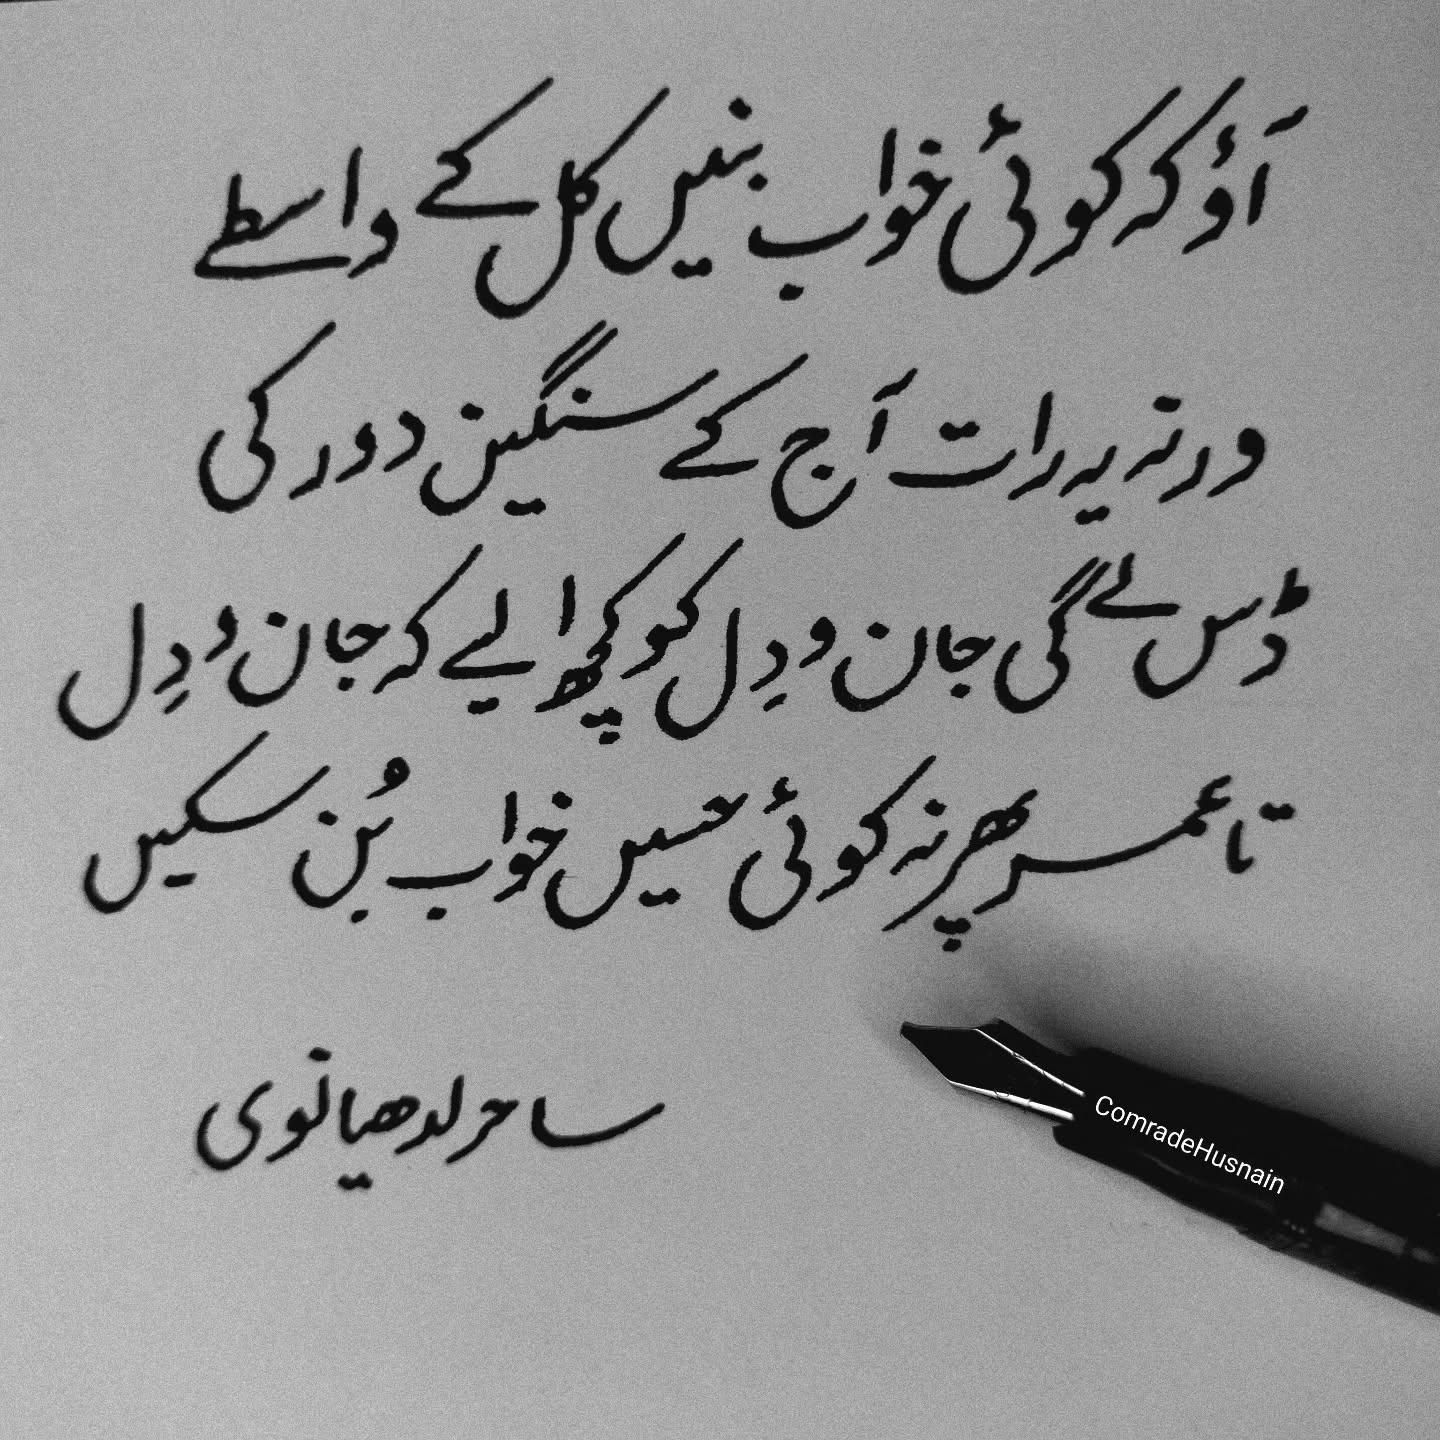 آؤ کہ کوئی خواب بنیں کل کے واسطے
ورنہ یہ رات آج کے سنگین دور کی
ڈس لے گی جان و دِل کو کچھ ایسے کہ جان و دِل
تا عمر پھر نہ کوئی حسیں خواب بُن سکیں
ساحر لدھیانوی
ComradeHusnain